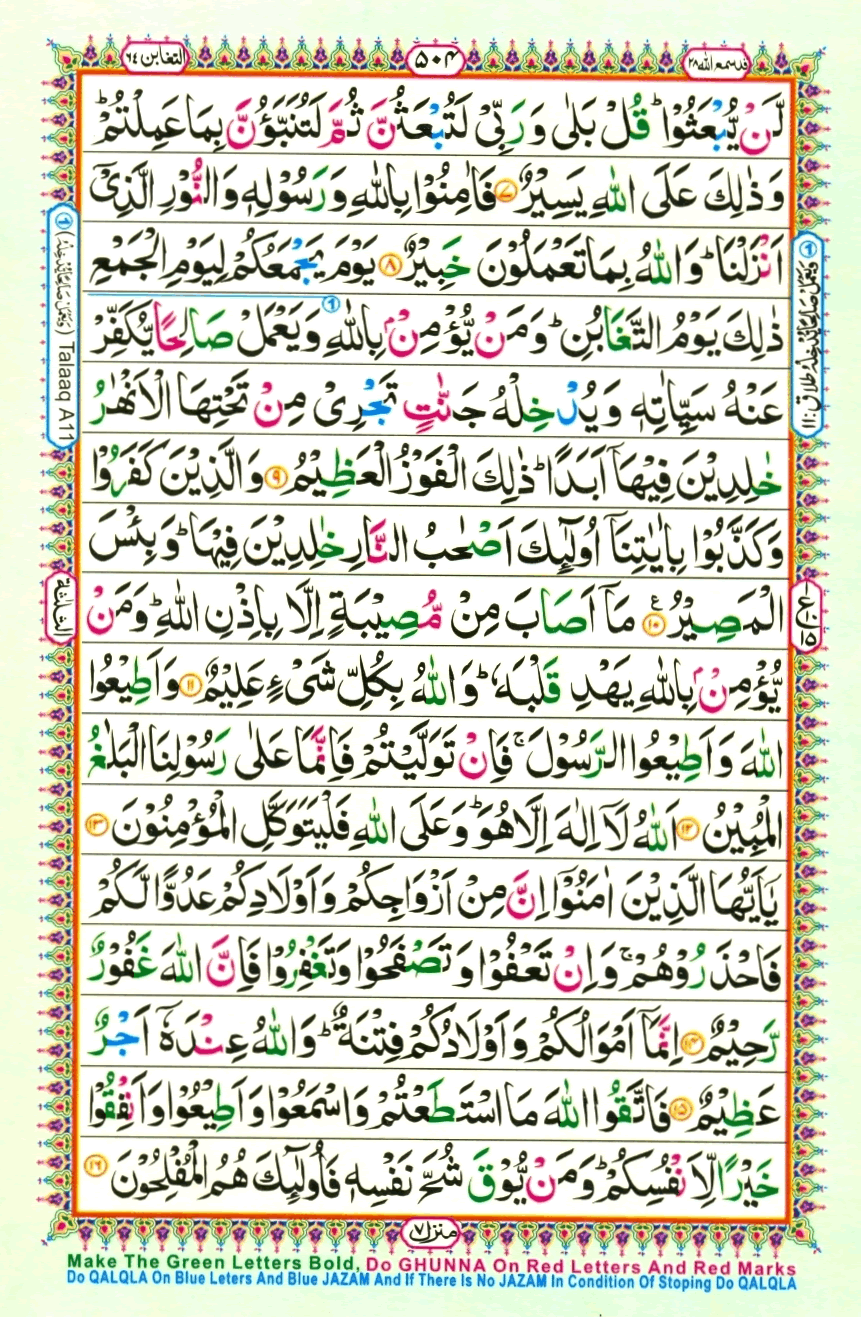 التغابن ٦٤
٥٠٤
قد سمع الله ٢٨
لَّنۡ يُّبۡعَثُوۡا ؕ قُلۡ بَلٰى وَرَبِّىۡ لَتُبۡعَثُنَّ ثُمَّ لَتُنَبَّؤُنَّ بِمَا عَمِلۡتُمۡ ؕ
وَذٰلِكَ عَلَى اللّٰهِ يَسِيۡرٌ ۷ فَاٰمِنُوۡا بِاللّٰهِ وَرَسُوۡلِهٖ وَالنُّوۡرِ الَّذِىۡۤ
اَنۡزَلۡنَا ؕ وَاللّٰهُ بِمَا تَعۡمَلُوۡنَ خَبِيۡرٌ ۸ يَوۡمَ يَجۡمَعُكُمۡ لِيَوۡمِ الۡجَمۡعِ
ذٰلِكَ يَوۡمُ التَّغَابُنِ ؕ وَمَنۡ يُّؤۡمِنۡۢ بِاللّٰهِ وَيَعۡمَلۡ صَالِحًا يُّكَفِّرۡ
عَنۡهُ سَيِّاٰتِهٖ وَيُدۡخِلۡهُ جَنّٰتٍ تَجۡرِىۡ مِنۡ تَحۡتِهَا الۡاَنۡهٰرُ
خٰلِدِيۡنَ فِيۡهَاۤ اَبَدًا ؕ ذٰلِكَ الۡفَوۡزُ الۡعَظِيۡمُ ۹ وَالَّذِيۡنَ كَفَرُوۡا
وَكَذَّبُوۡا بِاٰيٰتِنَاۤ اُولٰٓئِكَ اَصۡحٰبُ النَّارِ خٰلِدِيۡنَ فِيۡهَا ؕ وَبِئۡسَ
الۡمَصِيۡرُ ۱۰ مَاۤ اَصَابَ مِنۡ مُّصِيۡبَةٍ اِلَّا بِاِذۡنِ اللّٰهِ ؕ وَمَنۡ
يُّؤۡمِنۡۢ بِاللّٰهِ يَهۡدِ قَلۡبَهٗ ؕ وَاللّٰهُ بِكُلِّ شَىۡءٍ عَلِيۡمٌ ۱۱ وَاَطِيۡعُوا
اللّٰهَ وَاَطِيۡعُوا الرَّسُوۡلَ ۚ فَاِنۡ تَوَلَّيۡتُمۡ فَاِنَّمَا عَلٰى رَسُوۡلِنَا الۡبَلٰغُ
الۡمُبِيۡنُ ۱۲ اَللّٰهُ لَاۤ اِلٰهَ اِلَّا هُوَ ؕ وَعَلَى اللّٰهِ فَلۡيَتَوَكَّلِ الۡمُؤۡمِنُوۡنَ ۱۳
يٰۤاَيُّهَا الَّذِيۡنَ اٰمَنُوۡۤا اِنَّ مِنۡ اَزۡوَاجِكُمۡ وَاَوۡلَادِكُمۡ عَدُوًّا لَّكُمۡ
فَاحۡذَرُوۡهُمۡ ۚ وَاِنۡ تَعۡفُوۡا وَتَصۡفَحُوۡا وَتَغۡفِرُوۡا فَاِنَّ اللّٰهَ غَفُوۡرٌ
رَّحِيۡمٌ ۱۴ اِنَّمَاۤ اَمۡوَالُكُمۡ وَاَوۡلَادُكُمۡ فِتۡنَةٌ ؕ وَاللّٰهُ عِنۡدَهٗۤ اَجۡرٌ
عَظِيۡمٌ ۱۵ فَاتَّقُوا اللّٰهَ مَا اسۡتَطَعۡتُمۡ وَاسۡمَعُوۡا وَاَطِيۡعُوۡا وَاَنۡفِقُوۡا
خَيۡرًا لِّاَنۡفُسِكُمۡ ؕ وَمَنۡ يُّوۡقَ شُحَّ نَفۡسِهٖ فَاُولٰٓئِكَ هُمُ الۡمُفۡلِحُوۡنَ ۱۶
① وَيَعۡمَلۡ صَالِحًا يُّدۡخِلۡهُ طلاق : ۱۱
ع ١٥
① (وَيَعۡمَلۡ صَالِحًا يُّدۡخِلۡهُ) Talaaq A11
الثلٰثة
منزل ٧
Make The Green Letters Bold, Do GHUNNA On Red Letters And Red Marks
Do QALQLA On Blue Leters And Blue JAZAM And If There Is No JAZAM In Condition Of Stoping Do QALQLA